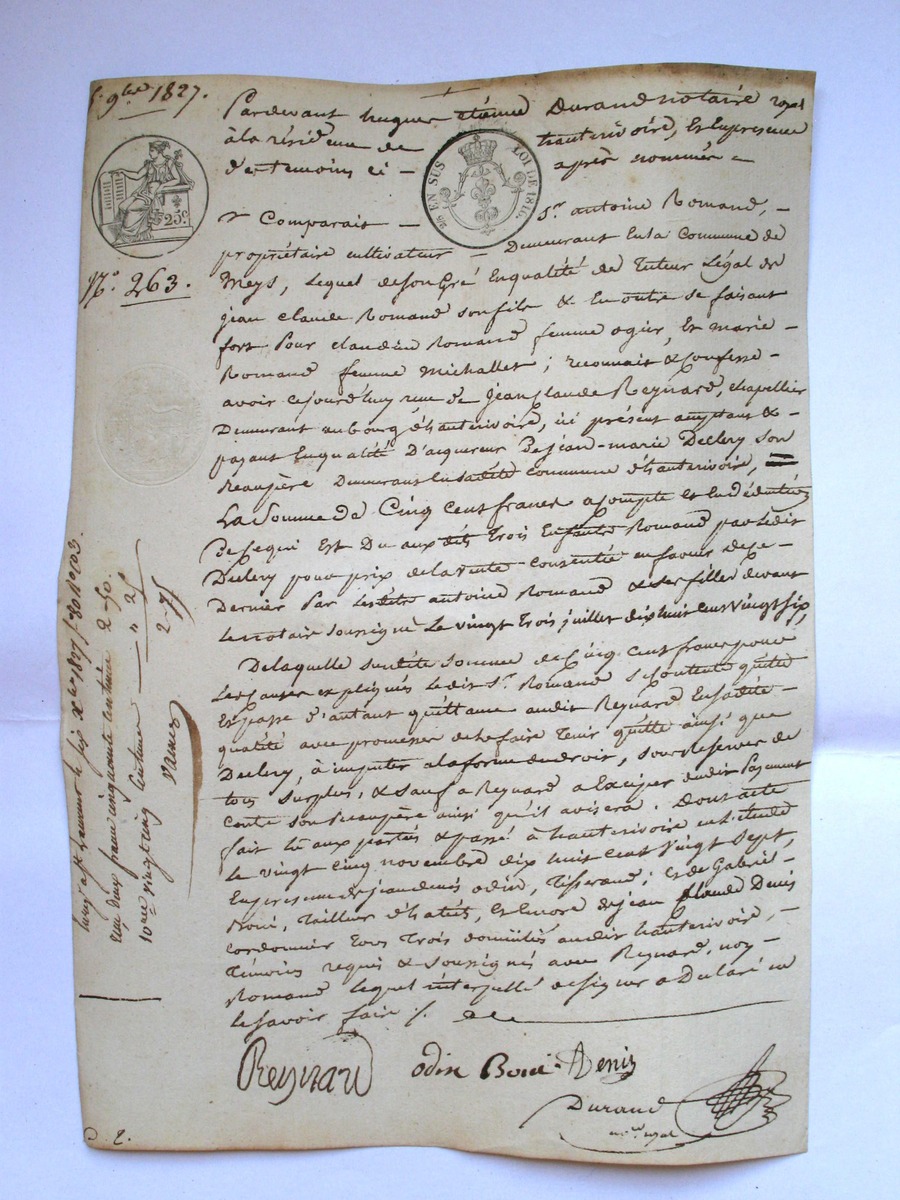 9bre 1827.
25c.
Nº 263.
EN SUS LOI DE 1816.
Pardevant hugues étienne Durand notaire royal
à la résidence de hauterivoire, En presence
des temoins ci - après nommés -
Comparait - Sr. antoine Romand, -
propriétaire cultivateur - Demeurant En la Commune de
Meys, Lequel de son Gré En qualité de Tuteur Légal de
jean claude Romand son fils & En outre se faisant
fort Pour claudine Romand femme ogier, Et marie -
Romand femme Michallet; reconnait & confesse -
avoir cejourd'huy reçu de jean claude Reynard, chapellier
Demeurant au bourg d'hauterivoire, ici présent acceptant & -
payant En qualité D'acquereur De jean-marie Declery son
Beaupère Demeurant En ladite commune d'hauterivoire,
La Somme de Cinq Cent francs acompte et En déduction
De ce qui Est Du aux dits Trois Enfants Romand par Ledit
Declery pour prix de la vente consentie en faveur de ce
Dernier Par Ledit antoine Romand & ses filles devant
Le notaire soussigné Le vingt Trois juillet dix huit cent vingt six,
De laquelle susdite somme de Cinq cent francs pour
Les Causes expliquées Ledit Sr. Romand Se contente quitte
Et passe d'autant quittance audit Reynard En sadite -
qualité avec promesse de le faire Tenir quitte ainsi que
Declery, à imputer à la forme du droit, sous Reserves de
tous surplus, & sauf a Reynard a Exciper dudit Payement
contre son Beaupère ainsi qu'il avisera. Dont acte
fait Lu aux parties & passé à hauterivoire en l'étude
Le vingt cinq novembre dix huit cent vingt Sept,
En presence de jean denis odin, Tisserand; et de Gabriel -
Boué, Tailleur d'habits, Et Encore de jean claude Denis
Cordonnier Tous Trois domiciliés audit hauterivoire, -
Témoins requis & soussignés avec Reynard, non -
Romand Lequel interpellé de signer a Déclaré ne
le savoir faire
Reynard odin Boué Denis
Durand
nre. royal
reçu deux francs cinquante centimes 2-50.
10me vingt cinq centimes — " 25
2-75